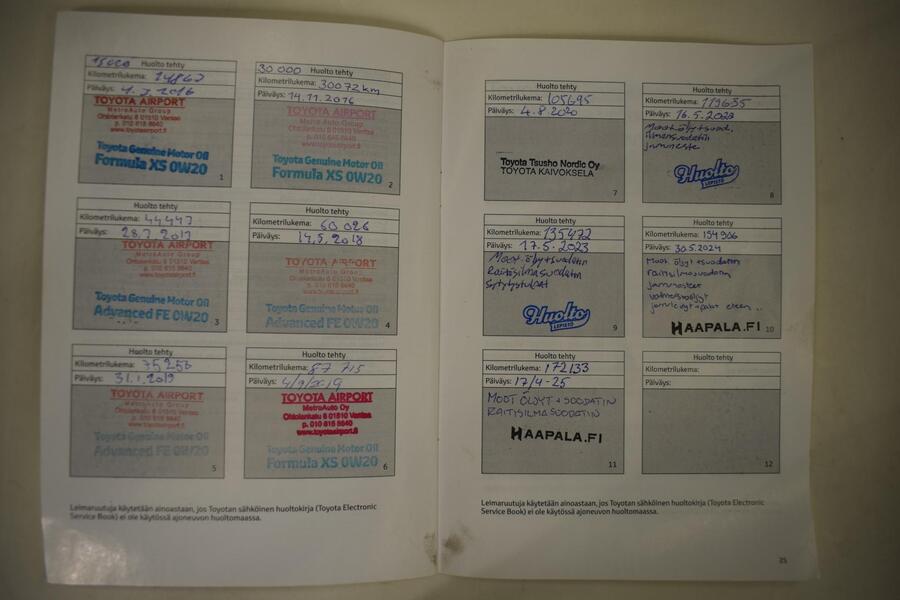 15000 Huolto tehty
Kilometrilukema: 14862
Päiväys: 4.2.2016
TOYOTA AIRPORT
MetroAuto Group
Ohtolankatu 6 01510 Vantaa
p. 010 615 8640
www.toyotaairport.fi
Toyota Genuine Motor Oil
Formula XS 0W20
1
30 000 Huolto tehty
Kilometrilukema: 30072 km
Päiväys: 14.11.2016
TOYOTA AIRPORT
MetroAuto Group
Ohtolankatu 6 01510 Vantaa
p. 010 615 8640
www.toyotaairport.fi
Toyota Genuine Motor Oil
Formula XS 0W20
2
Huolto tehty
Kilometrilukema: 44447
Päiväys: 28.7.2017
TOYOTA AIRPORT
MetroAuto Group
Ohtolankatu 6 01510 Vantaa
p. 010 615 8640
www.toyotaairport.fi
Toyota Genuine Motor Oil
Advanced FE 0W20
3
Huolto tehty
Kilometrilukema: 60 026
Päiväys: 14.5.2018
TOYOTA AIRPORT
MetroAuto Group
Ohtolankatu 6 01510 Vantaa
p. 010 615 8640
www.toyotaairport.fi
Toyota Genuine Motor Oil
Advanced FE 0W20
4
Huolto tehty
Kilometrilukema: 75253
Päiväys: 31.1.2019
TOYOTA AIRPORT
MetroAuto Group
Ohtolankatu 6 01510 Vantaa
p. 010 615 8640
www.toyotaairport.fi
Toyota Genuine Motor Oil
Advanced FE 0W20
5
Huolto tehty
Kilometrilukema: 87 715
Päiväys: 4/9/2019
TOYOTA AIRPORT
MetroAuto Oy
Ohtolankatu 6 01510 Vantaa
p. 010 615 8640
www.toyotaairport.fi
Toyota Genuine Motor Oil
Formula XS 0W20
6
Leimaruutuja käytetään ainoastaan, jos Toyotan sähköinen huoltokirja (Toyota Electronic
Service Book) ei ole käytössä ajoneuvon huoltomaassa.
Huolto tehty
Kilometrilukema: 105695
Päiväys: 4.8.2020
Toyota Tsusho Nordic Oy
TOYOTA KAIVOKSELA
7
Huolto tehty
Kilometrilukema: 119635
Päiväys: 16.5.2022
Moot.öljytsuod,
ilmansuodatin
jarruneste
Huolto
LEPISTÖ
8
Huolto tehty
Kilometrilukema: 135472
Päiväys: 17.5.2023
Moot.öljytsuodatin
Raitisilmasuodatin
Sytytystulpat
Huolto
LEPISTÖ
9
Huolto tehty
Kilometrilukema: 154906
Päiväys: 30.5.2024
Moot. öljyt+suodatin
raitisilmasuodatin
jarrunesteet
HAAPALA.FI
10
Huolto tehty
Kilometrilukema: 172133
Päiväys: 17/4-25
MOOT ÖLJYT+SUODATIN
RAITISILMASUODATIN
HAAPALA.FI
11
Huolto tehty
Kilometrilukema:
Päiväys:
12
Leimaruutuja käytetään ainoastaan, jos Toyotan sähköinen huoltokirja (Toyota Electronic
Service Book) ei ole käytössä ajoneuvon huoltomaassa.
25